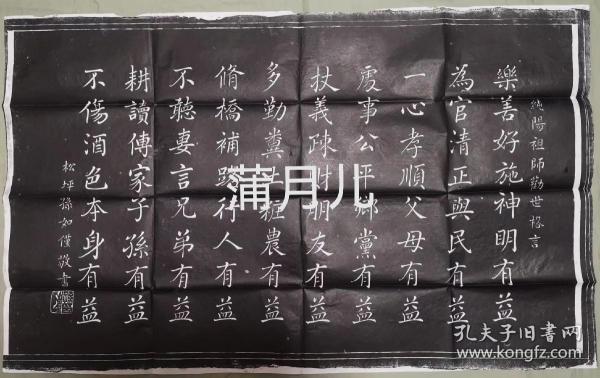 純陽祖師勸世格言
樂善好施神明有益
為官清正與民有益
一心孝順父母有益
處事公平鄉黨有益
杖義疎財朋友有益
多勤糞土莊農有益
脩橋補路行人有益
不聽妻言兄弟有益
耕讀傳家子孫有益
不傷酒色本身有益
松坪孫如僅敬書
蒲月儿
孔夫子旧书网
www.kongfz.com